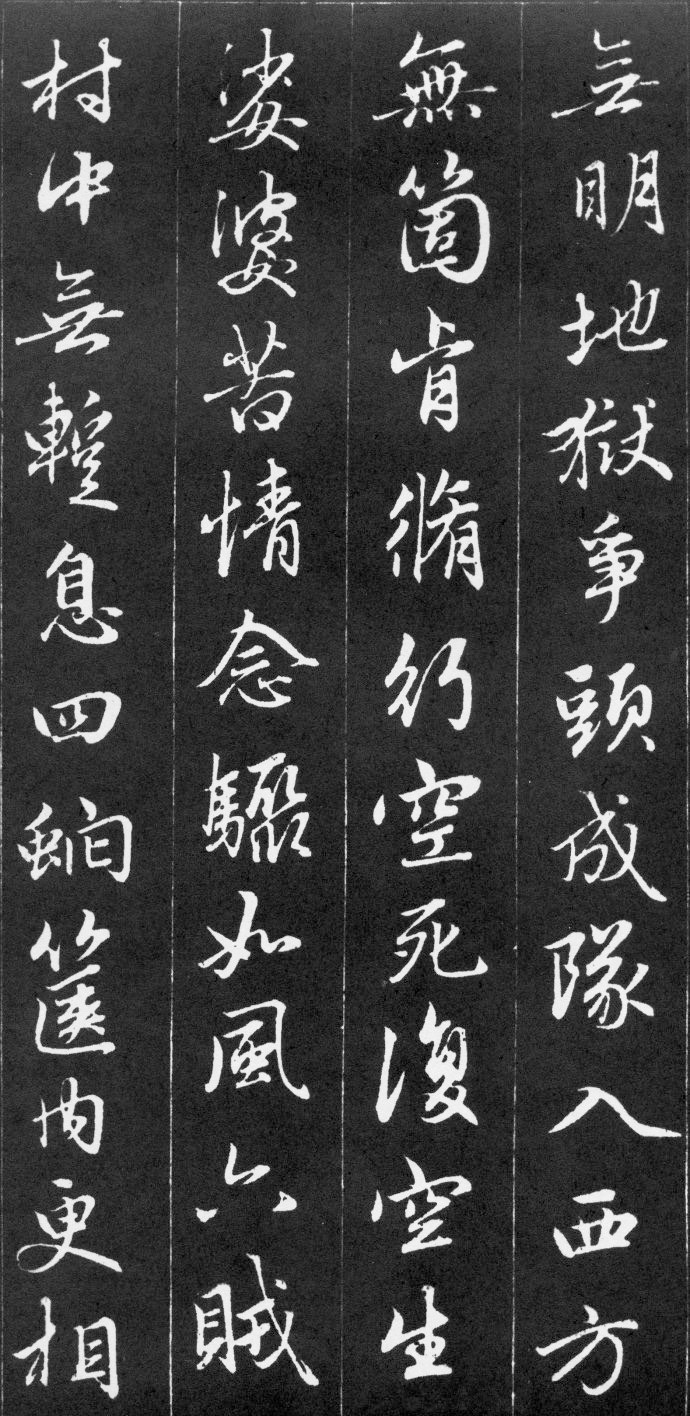 無明地獄爭頭成隊入西方
無箇肯脩行空死復空生
娑婆苦情念驟如風六賊
村中無蹔息四蛇篋內更相